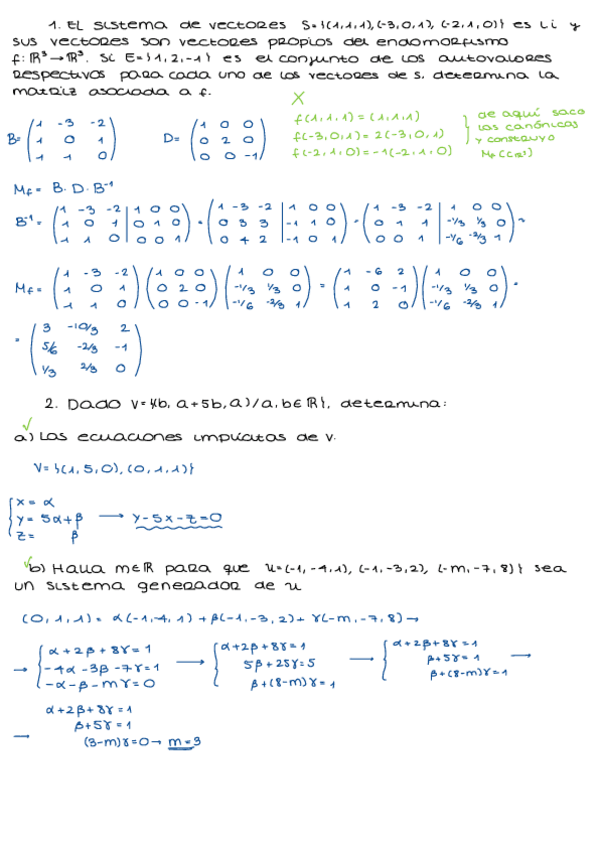 1. El sistema de vectores S={(1,1,1),(-3,0,1),(-2,1,0)} es Li y
sus vectores son vectores propios del endomorfismo
f: ℝ³→ℝ³. Si E={1,2,-1} es el conjunto de los autovalores
respectivos para cada uno de los vectores de S, determina la
matriz asociada a f.
X
f(1,1,1)=(1,1,1)
f(-3,0,1)=2(-3,0,1)
f(-2,1,0)=-1(-2,1,0)
de aquí saco
las canónicas
y construyo
Mf(Cℝ³)
B= (1 -3 -2 / 1 0 1 / 1 1 0) D= (1 0 0 / 0 2 0 / 0 0 -1)
Mf = B·D·B⁻¹
B⁻¹= (1 -3 -2 | 1 0 0 / 1 0 1 | 0 1 0 / 1 1 0 | 0 0 1) = (1 -3 -2 | 1 0 0 / 0 3 3 | -1 1 0 / 0 4 2 | -1 0 1) = (1 -3 -2 | 1 0 0 / 0 1 1 | -1/3 1/3 0 / 0 0 1 | -1/6 -2/3 1) =
Mf= (1 -3 -2 / 1 0 1 / 1 1 0) (1 0 0 / 0 2 0 / 0 0 -1) (1 0 0 / -1/3 1/3 0 / -1/6 -2/3 1) = (1 -6 2 / 1 0 -1 / 1 2 0) (1 0 0 / -1/3 1/3 0 / -1/6 -2/3 1) =
= (3 -10/3 2 / 5/6 -2/3 -1 / 1/3 2/3 0)
2. Dado V={(b, a+5b, a)/a,b∈ℝ}, determina:
√
a) Las ecuaciones implícitas de V.
V={(1,5,0),(0,1,1)}
x = α
y = 5α+β → y-5x-z=0
z = β
√
b) Halla m∈ℝ para que U={(-1,-4,1), (-1,-3,2), (-m,-7,8)} sea
un sistema generador de U
(0,1,1)= α(-1,-4,1)+β(-1,-3,2)+γ(-m,-7,8)→
→ {α+2β+8γ=1 / -4α-3β-7γ=1 / -α-β-mγ=0 → {α+2β+8γ=1 / 5β+25γ=5 / β+(8-m)γ=1 → {α+2β+8γ=1 / β+5γ=1 / β+(8-m)γ=1 →
α+2β+8γ=1
β+5γ=1
→ (3-m)γ=0→ m=3